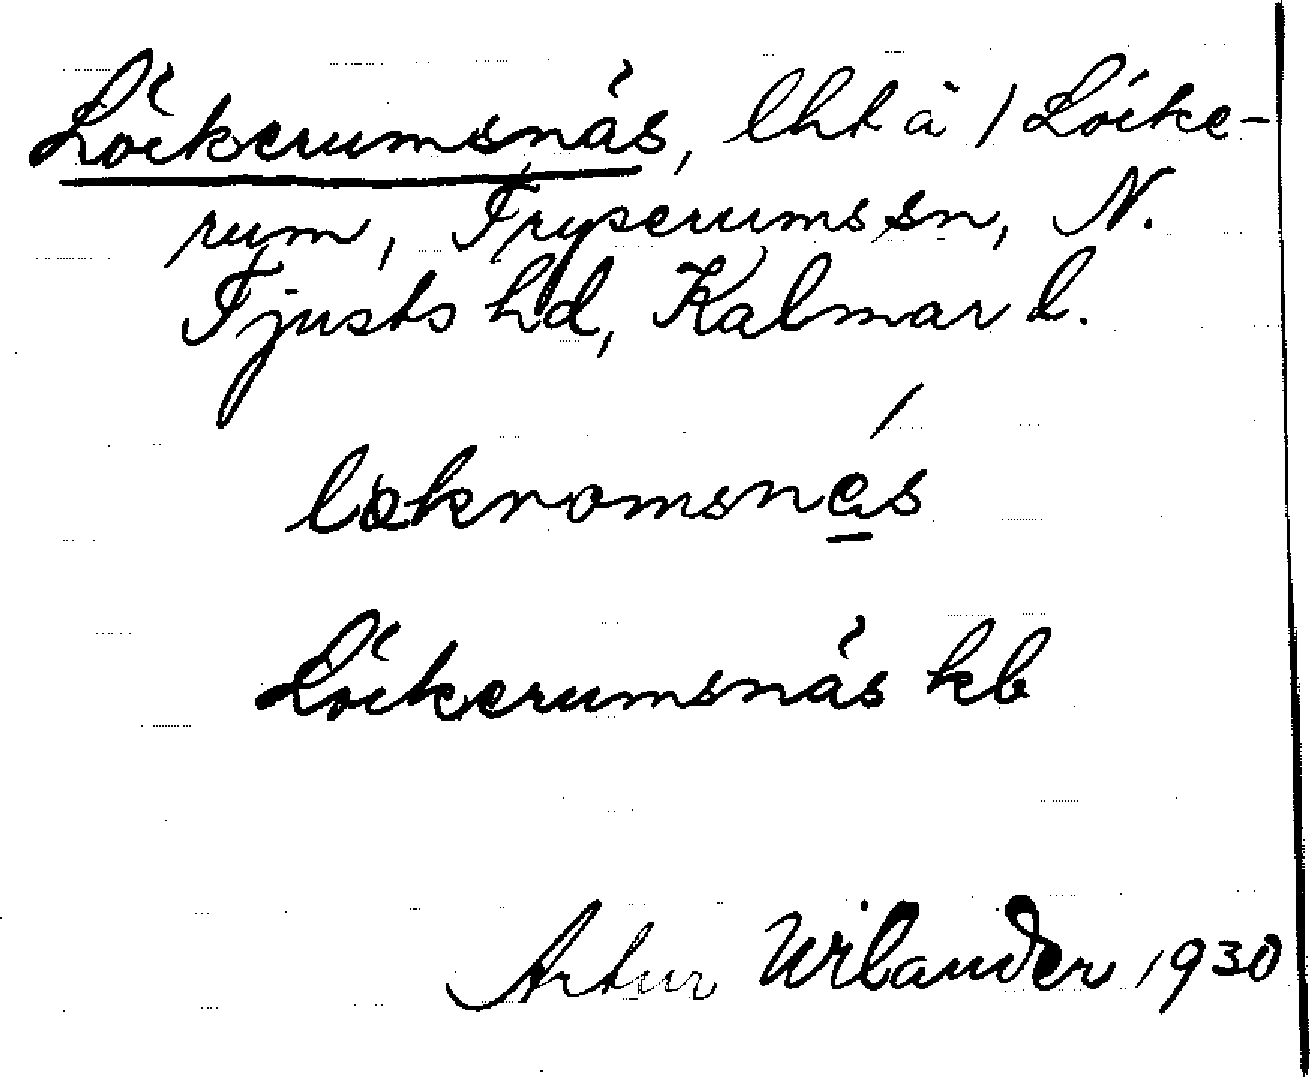 Löckerumsnäs, lht å 1 Löcke-
rum, Fryserums sn, N.
Tjusts hd, Kalmar l.
løkromsnẹs
Löckerumsnäs kb
Artur Wilander 1930